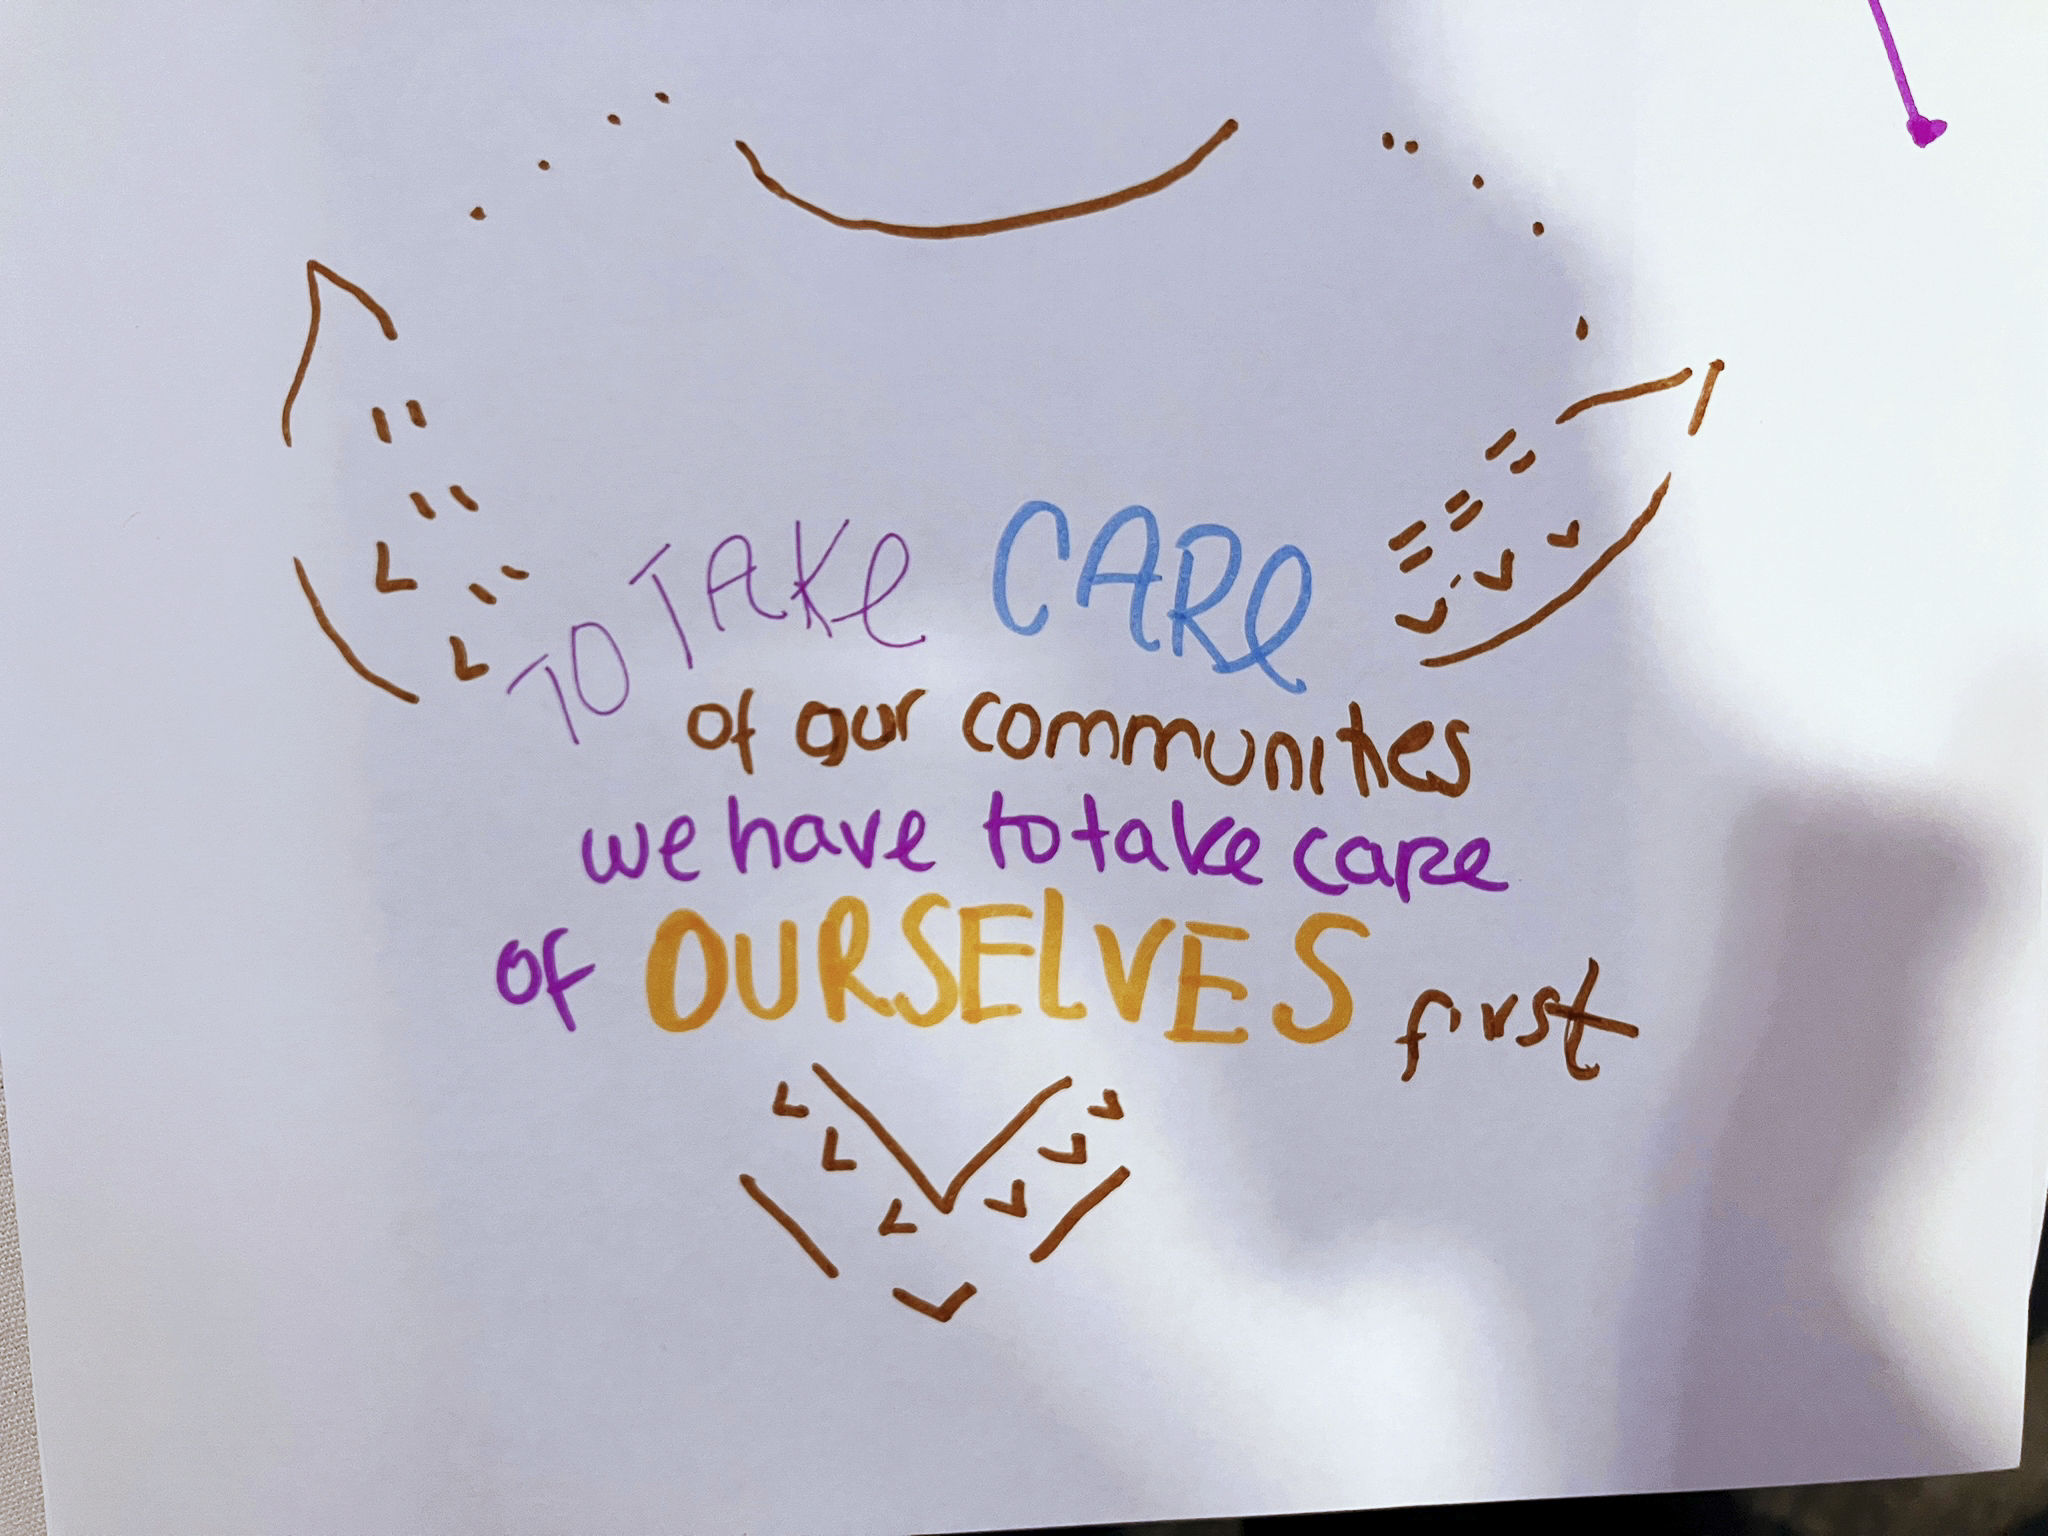 TO TAKE CARE
of our communities
we have to take care
of OURSELVES first